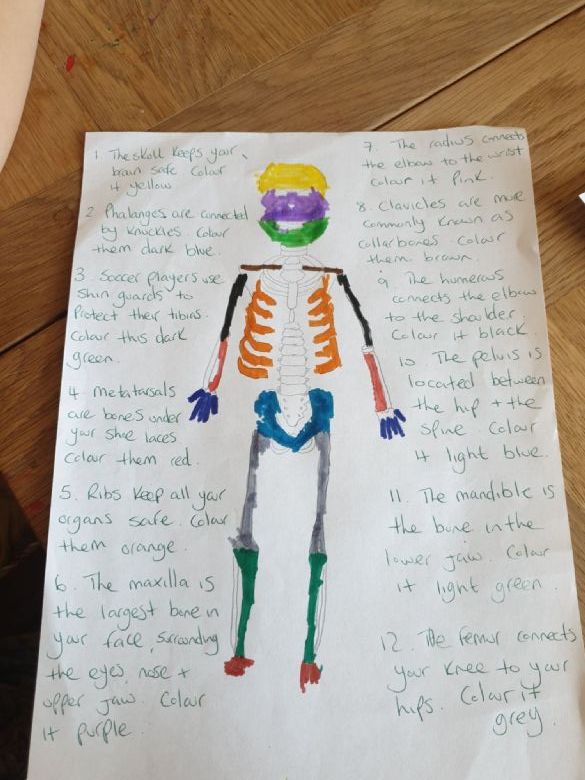 1. The skull keeps your
brain safe. Colour
it yellow
2. Phalanges are connected
by knuckles. Colour
them dark blue.
3. Soccer players use
shin guards to
Protect their tibias.
Colour this dark
green.
4. metatarsals
are bones under
your shoe laces
Colour them red.
5. Ribs keep all your
organs safe. Colour
them orange.
6. The maxilla is
the largest bone in
your face, surrounding
the eyes, nose +
upper jaw. Colour
it purple.
7. The radius connects
the elbow to the wrist
Colour it Pink.
8. Clavicles are more
commonly known as
collarbones. Colour
them brown.
9. The humerous
connects the elbow
to the shoulder.
Colour it black
10. The pelvis is
located between
the hip + the
spine. Colour
it light blue.
11. The mandible is
the bone in the
lower jaw. Colour
it light green.
12. The femur connects
your knee to your
hips. Colour it
grey.